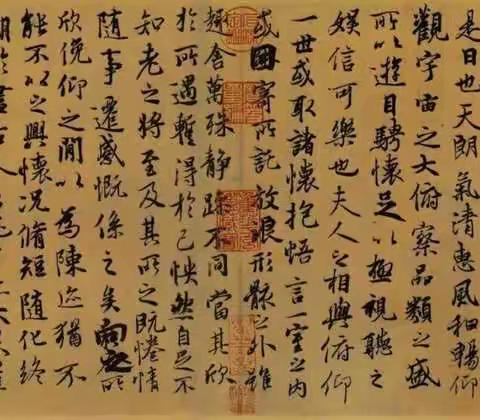 是日也天朗氣清惠風和暢仰
觀宇宙之大俯察品類之盛
所以遊目騁懷足以極視聽之
娛信可樂也夫人之相與俯仰
一世或取諸懷抱悟言一室之內
或因寄所託放浪形骸之外雖
趣舍萬殊靜躁不同當其欣
於所遇暫得於己怏然自足不
知老之將至及其所之既惓情
隨事遷感慨係之矣向之所
欣俛仰之閒以為陳迹猶不
能不以之興懷況脩短隨化終
期於盡古人